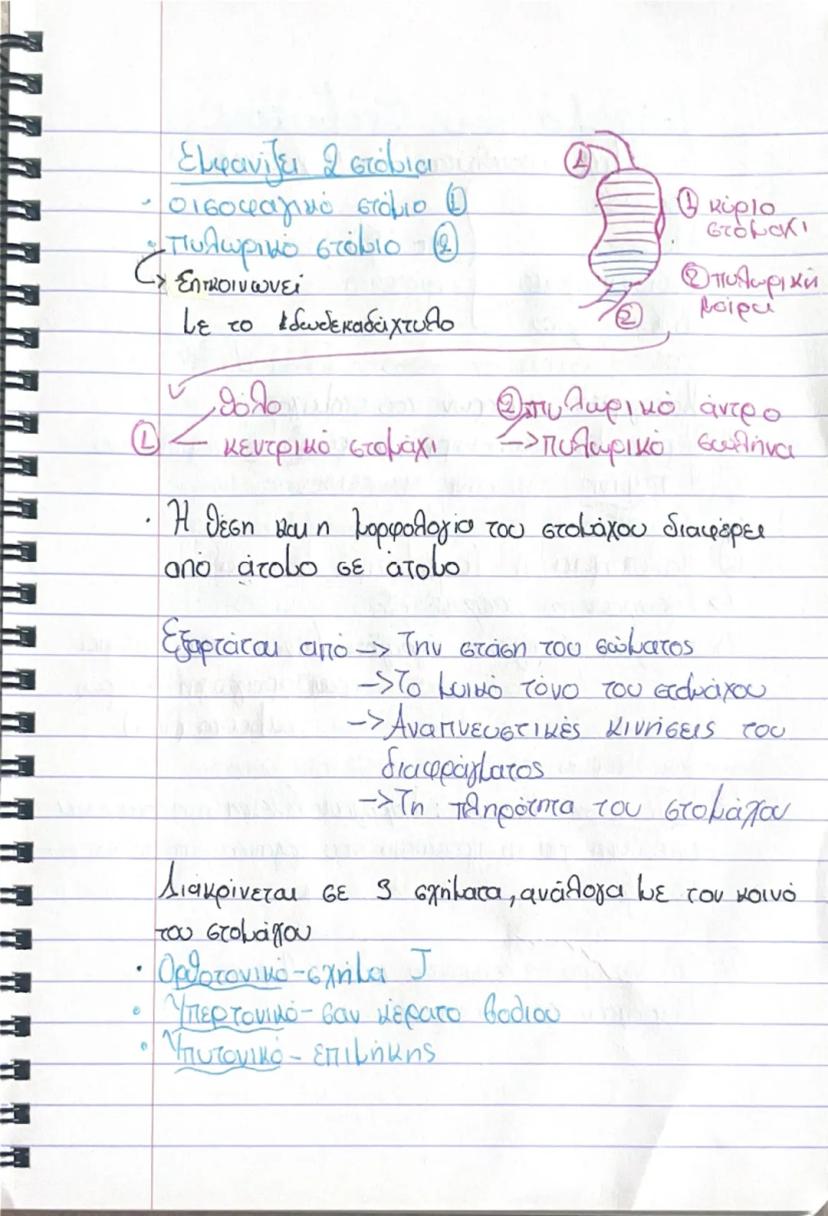 Εμφανίζει 2 στόμια
· οισοφαγικό στόμιο ①
· πυλωρικό στόμιο ②
επικοινωνεί
με το δωδεκαδάχτυλο
①
②
① κύριο
στομάχι
② πυλωρική
μοίρα
① θόλο
κεντρικό στομάχι
② πυλωρικό άντρο
-> πυλωρικό σωλήνα
· Η θέση και η μορφολογία του στομάχου διαφέρει
από άτομο σε άτομο
Εξαρτάται από -> Την στάση του σώματος
-> Το μυικό τόνο του στομάχου
-> Αναπνευστικές κινήσεις του
διαφράγματος
-> Τη πληρότητα του στομάχου
Διακρίνεται σε 3 σχήματα, ανάλογα με τον κοινό
του στομάχου
· Ορθοτονικό - σχήμα J
· Υπερτονικό - σαν κέρατο βοδιού
· Υπυτονικό - επιμήκης